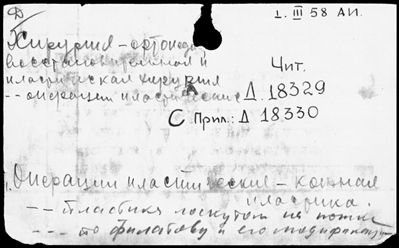 1. III 58 АИ.
Хирургия - ортопед
восстановительная и
пластическая хирургия
-- операции пластические
Чит.
Д. 18329
С Прил.: Д 18330
Операции пластические - кожная
пластика.
-- Пластика лоскутом на ножке
-- по Филатову и его модификац